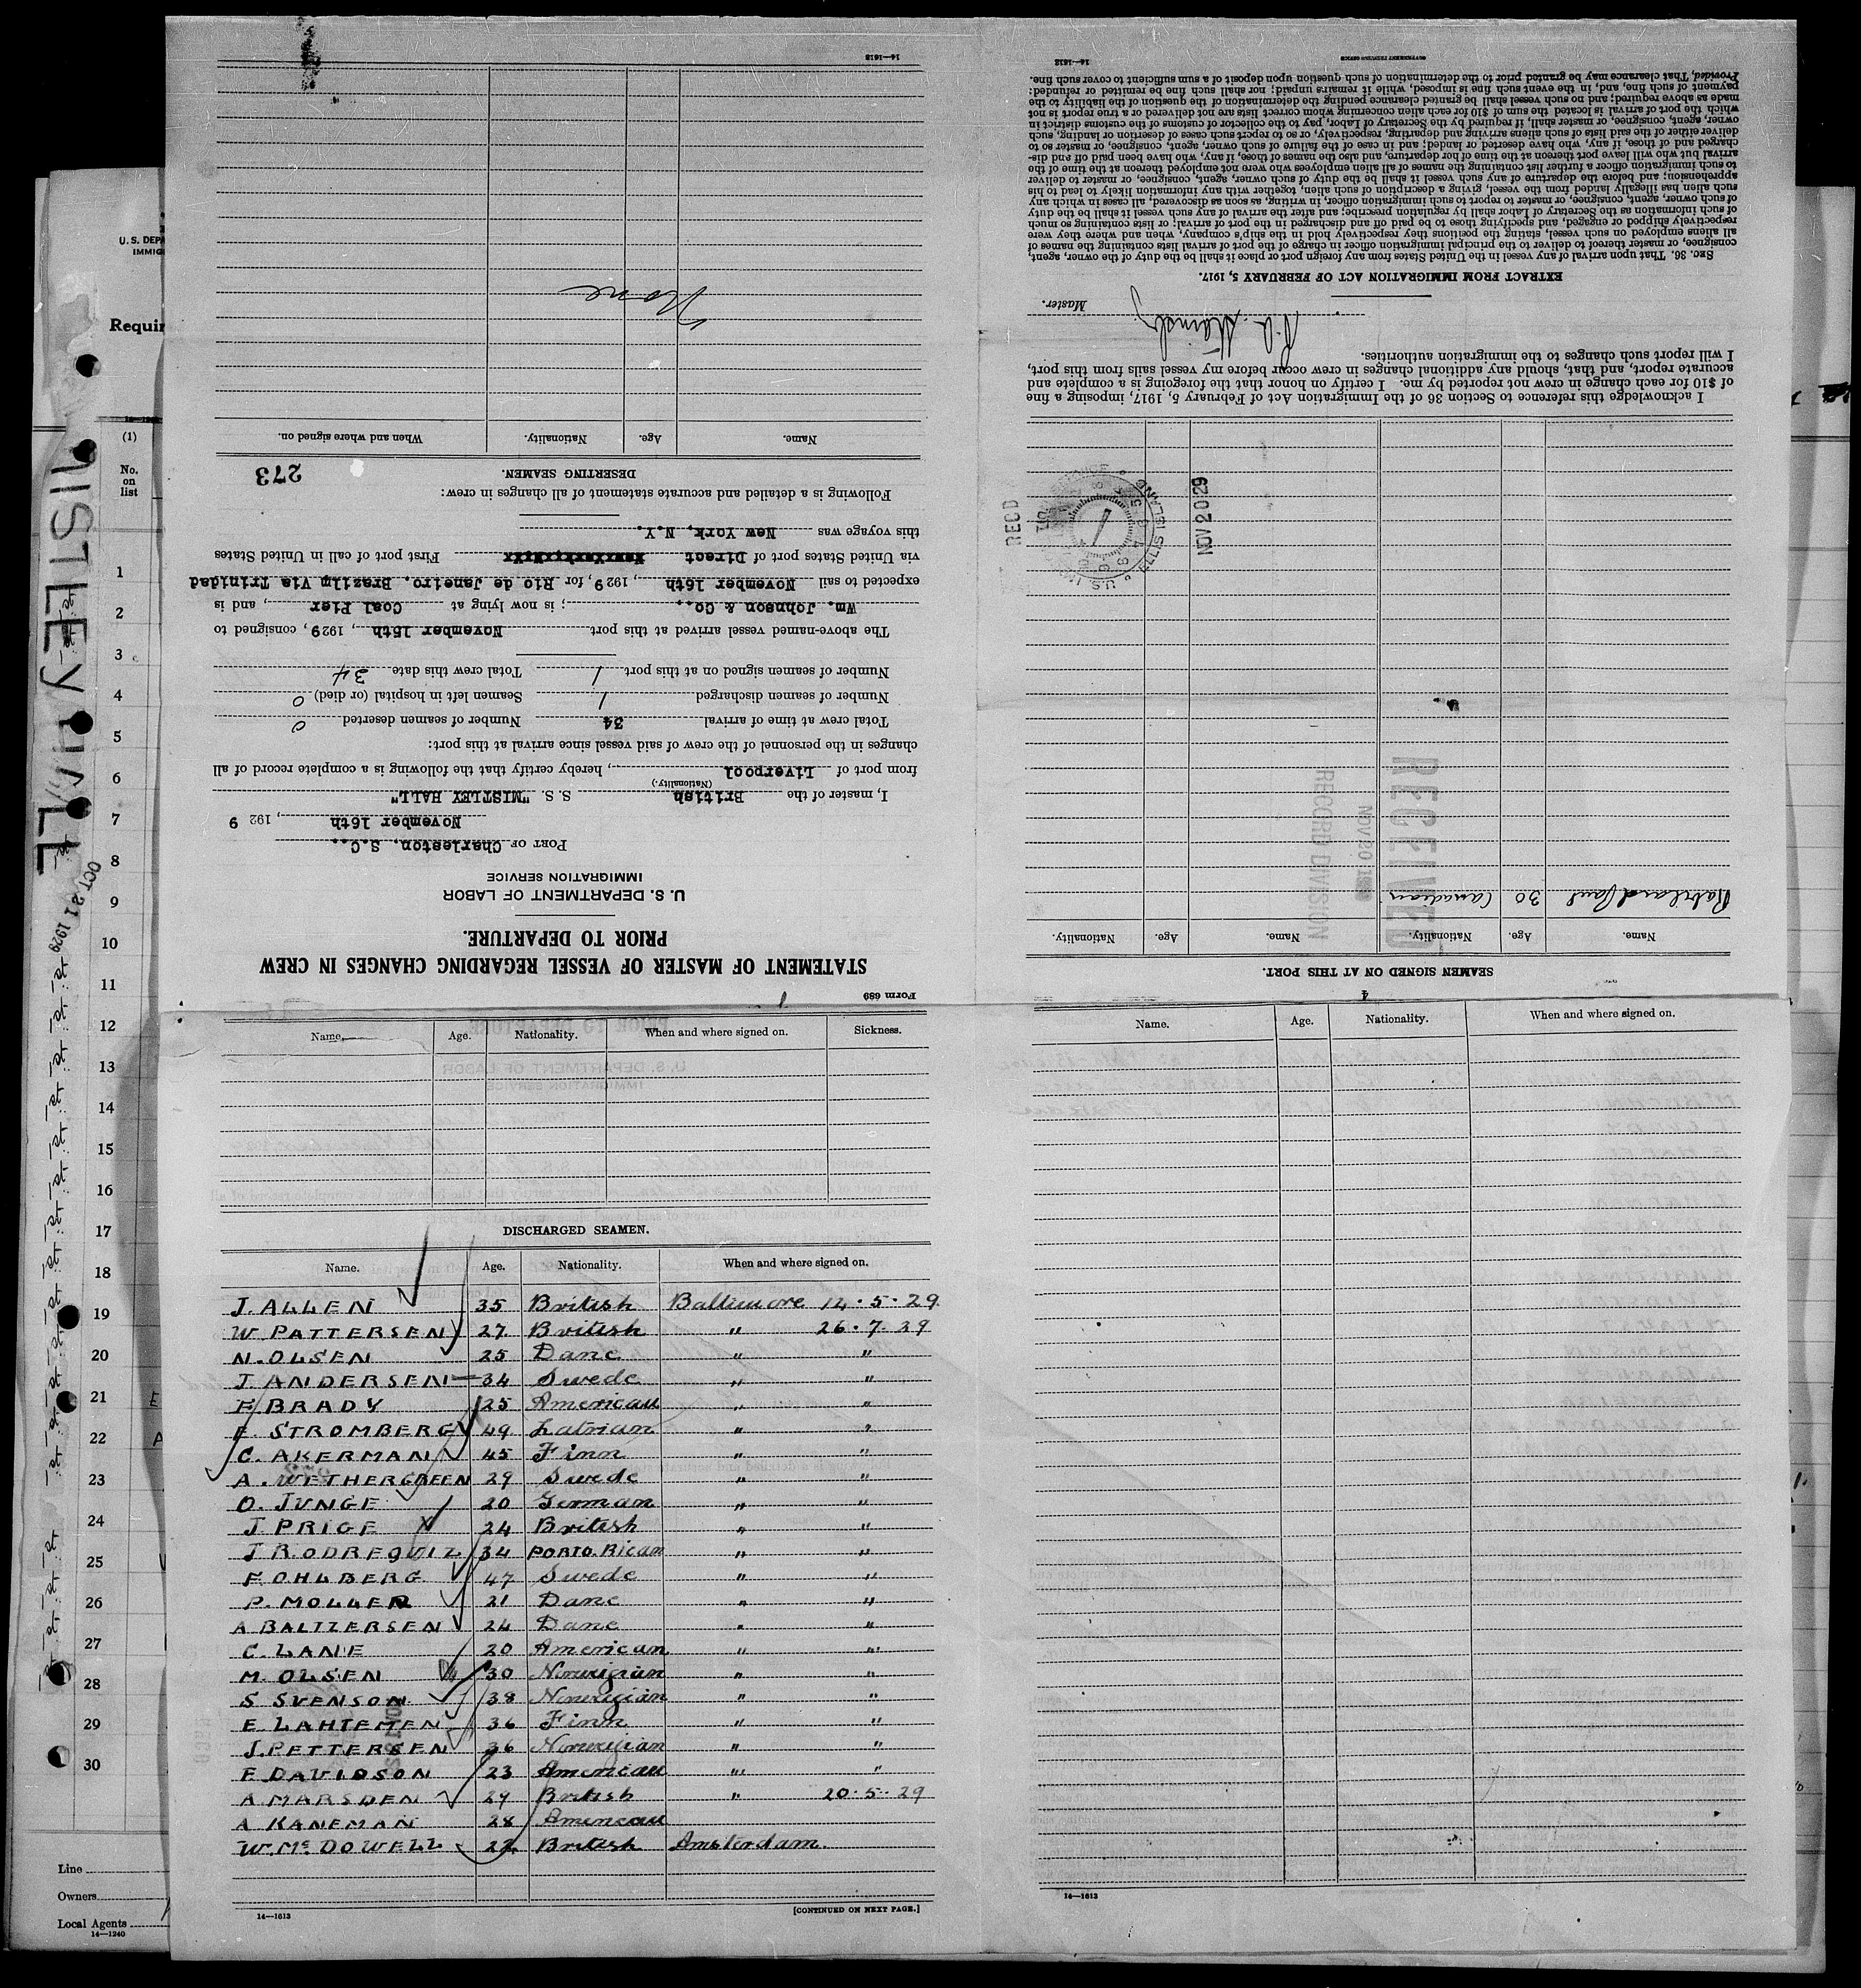 Form 689
STATEMENT OF MASTER OF VESSEL REGARDING CHANGES IN CREW
PRIOR TO DEPARTURE.
U. S. DEPARTMENT OF LABOR
IMMIGRATION SERVICE
PORT OF Charleston, S.C..
November 16th, 192 9
I, master of the British S. S. "MISTLEY HALL"
(Nationality.)
from port of Liverpool, hereby certify that the following is a complete record of all
changes in the personnel of the crew of said vessel since arrival at this port:
Total crew at time of arrival 34 Number of seamen deserted 0
Number of seamen discharged 1 Seamen left in hospital (or died) 0
Number of seamen signed on at this port 1 Total crew this date 34
The above-named vessel arrived at this port November 15th, 1929, consigned to
Wm. Johnson & Co..; is now lying at Coal Pier, and is
expected to sail November 16th, 1929, for Rio de Janeiro. Brazil, Via Trinidad
via United States port of Direct First port of call in United States
this voyage was New York, N.Y.
Following is a detailed and accurate statement of all changes in crew:
DESERTING SEAMEN.
273
Name. Age. Nationality. When and where signed on.
None
14—1613
SEAMEN SIGNED ON AT THIS PORT.
4
Name. Age. Nationality. Name. Age. Nationality.
Paul 30 Canadian
RECEIVED
NOV 20 1929
RECORD DIVISION
RECD
NOV 20 29
ELLIS ISLAND
I acknowledge this reference to Section 36 of the Immigration Act of February 5, 1917, imposing a fine
of $10 for each change in crew not reported by me. I certify on honor that the foregoing is a complete and
accurate report, and that, should any additional changes in crew occur before my vessel sails from this port,
I will report such changes to the immigration authorities.
Master.
EXTRACT FROM IMMIGRATION ACT OF FEBRUARY 5, 1917.
SEC. 36. That upon arrival of any vessel in the United States from any foreign port or place it shall be the duty of the owner, agent,
consignee, or master thereof to deliver to the principal immigration officer in charge of the port of arrival lists containing the names of
all aliens employed on such vessel, stating the positions they respectively hold in the ship's company, when and where they were
respectively shipped or engaged, and specifying those to be paid off and discharged in the port of arrival; or lists containing so much
of such information as the Secretary of Labor shall by regulation prescribe; and after the arrival of any such vessel it shall be the duty
of such owner, agent, consignee, or master to report to such immigration officer, in writing, as soon as discovered, all cases in which any
such alien has illegally landed from the vessel, giving a description of such alien, together with any information likely to lead to his
apprehension; and before the departure of any such vessel it shall be the duty of such owner, agent, consignee, or master to deliver
to such immigration officer a further list containing the names of all alien employees who were not employed thereon at the time of the
arrival but who will leave port thereon at the time of her departure, and also the names of those, if any, who have been paid off and dis-
charged and of those, if any, who have deserted or landed; and in case of the failure of such owner, agent, consignee, or master so to
deliver either of the said lists of such aliens arriving and departing, respectively, or so to report such cases of desertion or landing, such
owner, agent, consignee, or master shall, if required by the Secretary of Labor, pay to the collector of customs of the customs district in
which the port of arrival is located the sum of $10 for each alien concerning whom correct lists are not delivered or a true report is not
made as above required; and no such vessel shall be granted clearance pending the determination of the question of the liability to the
payment of such fine, and, in the event such fine is imposed, while it remains unpaid; nor shall such fine be remitted or refunded:
Provided, That clearance may be granted prior to the determination of such question upon deposit of a sum sufficient to cover such fine.
14—1613
Name. Age. Nationality. When and where signed on. Sickness.
DISCHARGED SEAMEN.
Name. Age. Nationality. When and where signed on.
J. ALLEN 35 British Baltimore 14.5.29
W. PATTERSEN 27 British " 26.7.29
N. OLSEN 25 Dane " "
J. ANDERSEN 34 Swede " "
F. BRADY 25 American " "
F. STROMBERG 49 Latvian " "
C. AKERMAN 45 Finn " "
A. WETHERGREEN 29 Swede " "
O. JUNGE 20 German " "
J PRIGE 24 British " "
J. RODREQUIZ 34 PORTO Rican " "
F. OHLBERG 47 Swede " "
P. MOLLER 21 Dane " "
A BALTZERSEN 24 Dane " "
C. LANE 20 American " "
M. OLSEN 30 Norwegian " "
S SVENSON 38 Norwegian " "
E. LAHTEMEN 36 Finn " "
J. PETTERSEN 36 Norwegian " "
F DAVIDSON 23 American " "
A MARSDEN 27 British " 20.5.29
A KANEMAN 28 American
W. Mc DOWELL 22 British Amsterdam
14—1613
[CONTINUED ON NEXT PAGE.]
Name. Age. Nationality. When and where signed on.
14—1613
U. S. DEPA
IMMIG
Requir
(1)
No.
on
list
MISTLEY HALL
OCT 21 1929
1
2
3
4
5
6
7
8
9
10
11
12
13
14
15
16
17
18
19
20
21
22
23
24
25
26
27
28
29
30
Line
Owners
Local Agents
14—1240